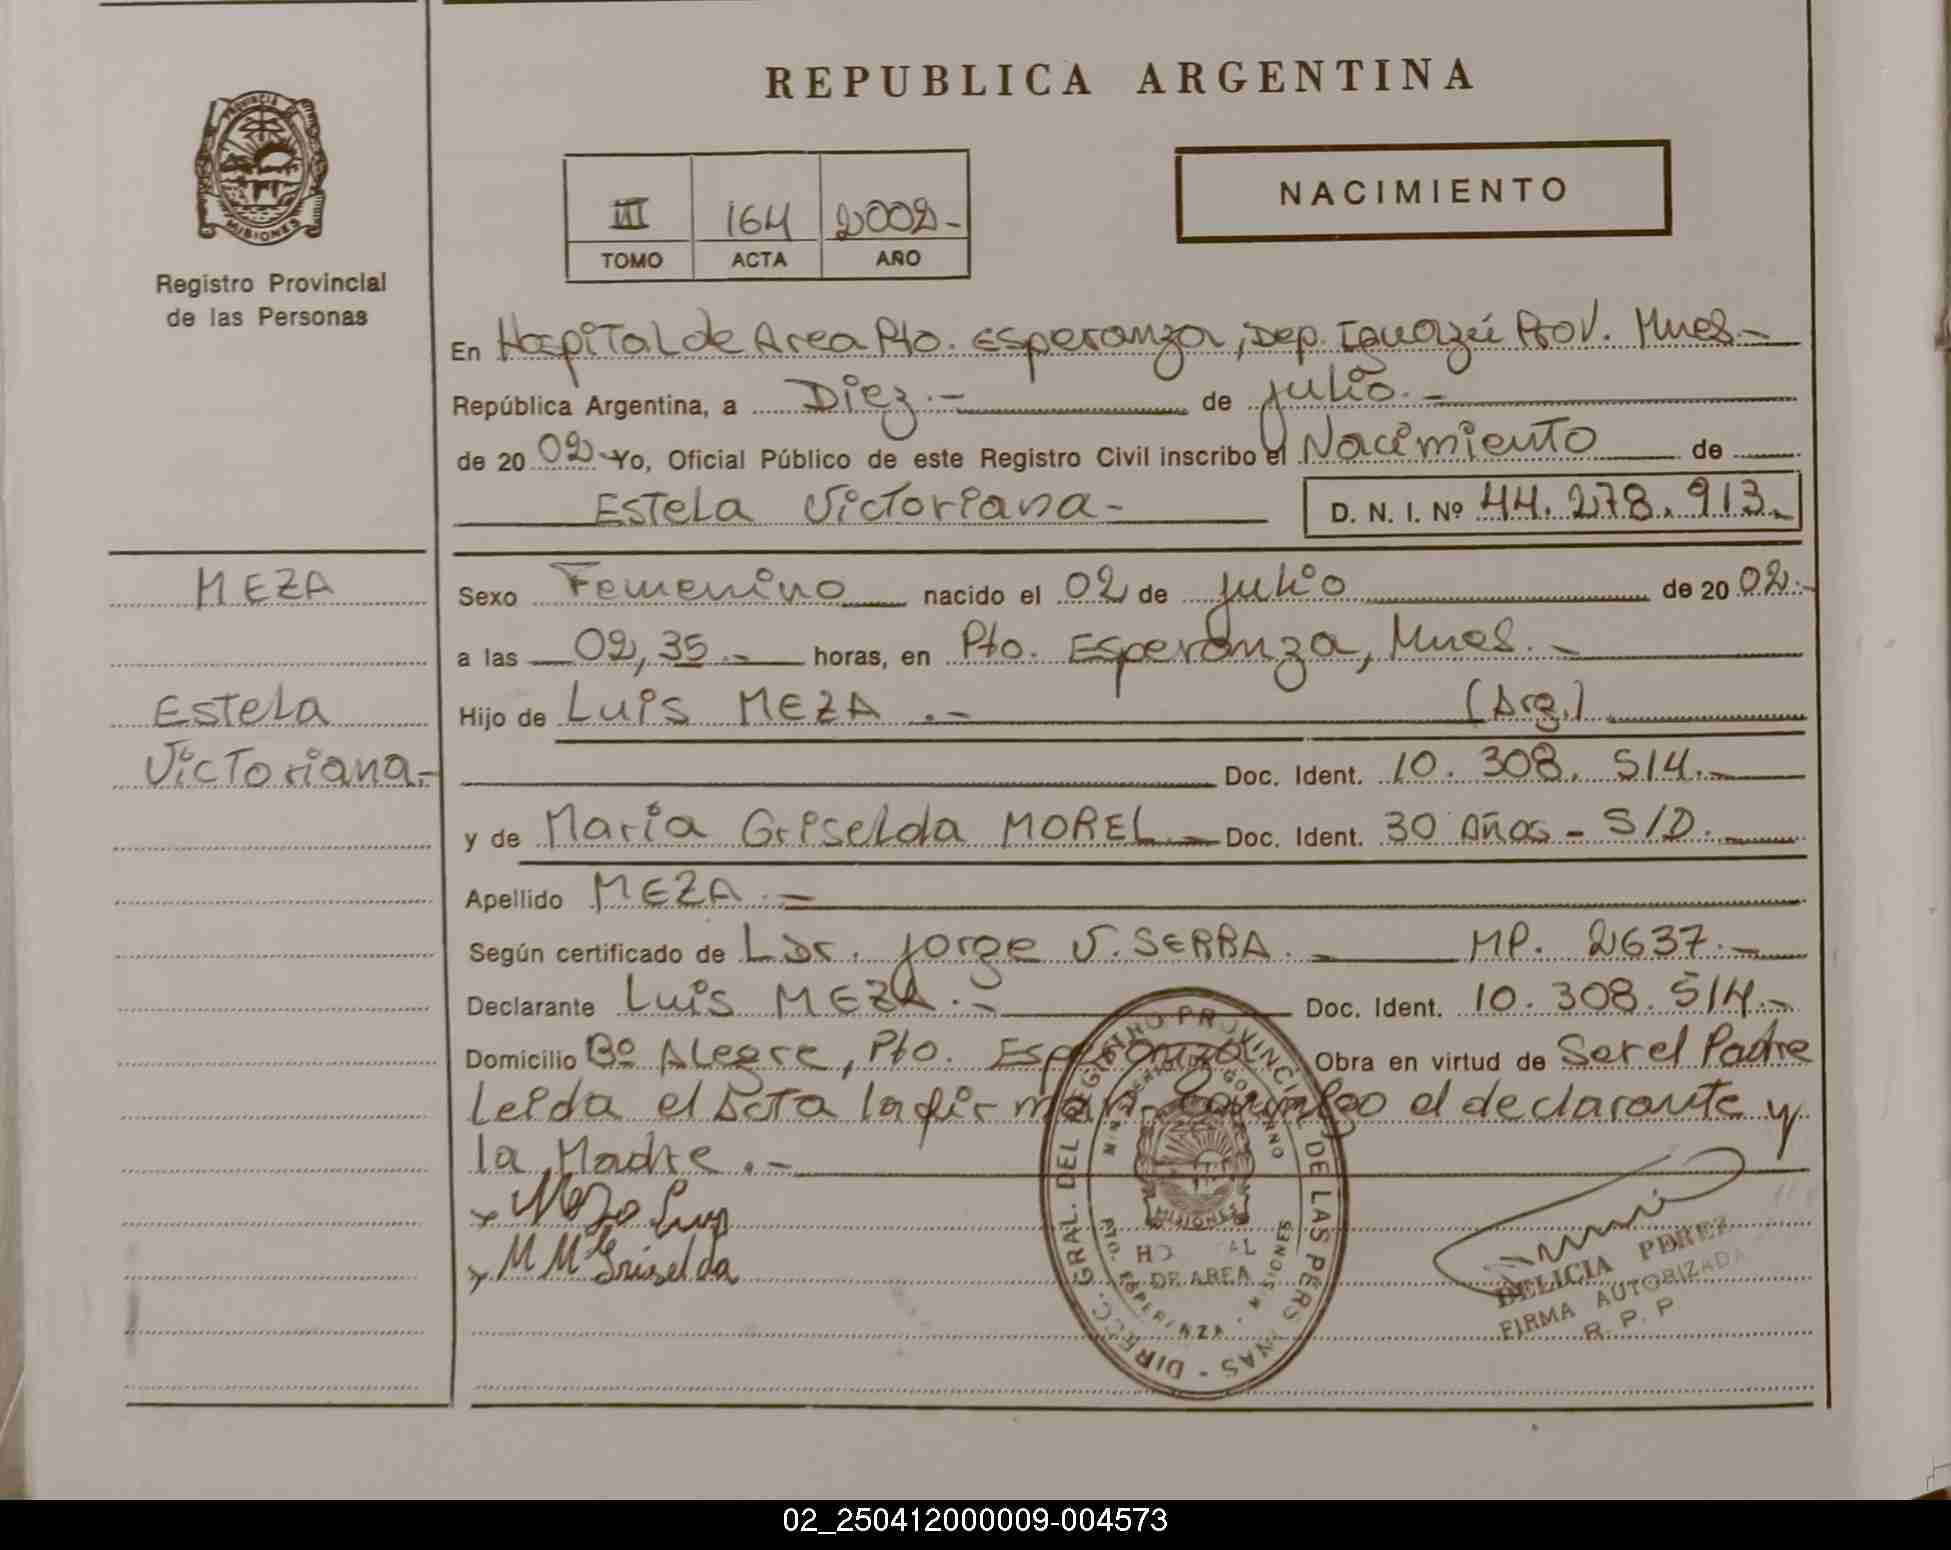 REPUBLICA ARGENTINA
PROVINCIA DE
MISIONES
Registro Provincial
de las Personas
NACIMIENTO
III 164 2002-
TOMO ACTA AÑO
En Hospital de Area Pto. Esperanza, Dep. Iguazú Prov. Mnes.-
República Argentina, a Diez.- de julio.-
de 20 02 Yo, Oficial Público de este Registro Civil inscribo el Nacimiento de
Estela Victoriana-
D. N. I. Nº 44.278.913.-
MEZA
Estela
Victoriana.-
Sexo Femenino nacido el 02 de julio de 20 02.-
a las 02,35.- horas, en Pto. Esperanza, Mnes.-
Hijo de Luis MEZA.- (Arg.)
Doc. Ident. 10.308.514.-
y de María Griselda MOREL.- Doc. Ident. 30 Años - S/D.-
Apellido MEZA.-
Según certificado de L Dr. Jorge V. SERRA.- MP. 2637.-
Declarante Luis MEZA.- Doc. Ident. 10.308.514.-
Domicilio Bº Alegre, Pto. Esperanza Obra en virtud de Ser el Padre
Leida el Acta la firman conmigo el declarante y
la Madre.-
x Meza Luis
x M Mª Griselda
DIRECC. GRAL. DEL REGISTRO PROVINCIAL DE LAS PERSONAS
MINISTERIO DE GOBIERNO
MISIONES
HOSPITAL
DE AREA
PTO. ESPERANZA - MISIONES
DELICIA PEREZ
FIRMA AUTORIZADA
R. P. P.
02_250412000009-004573